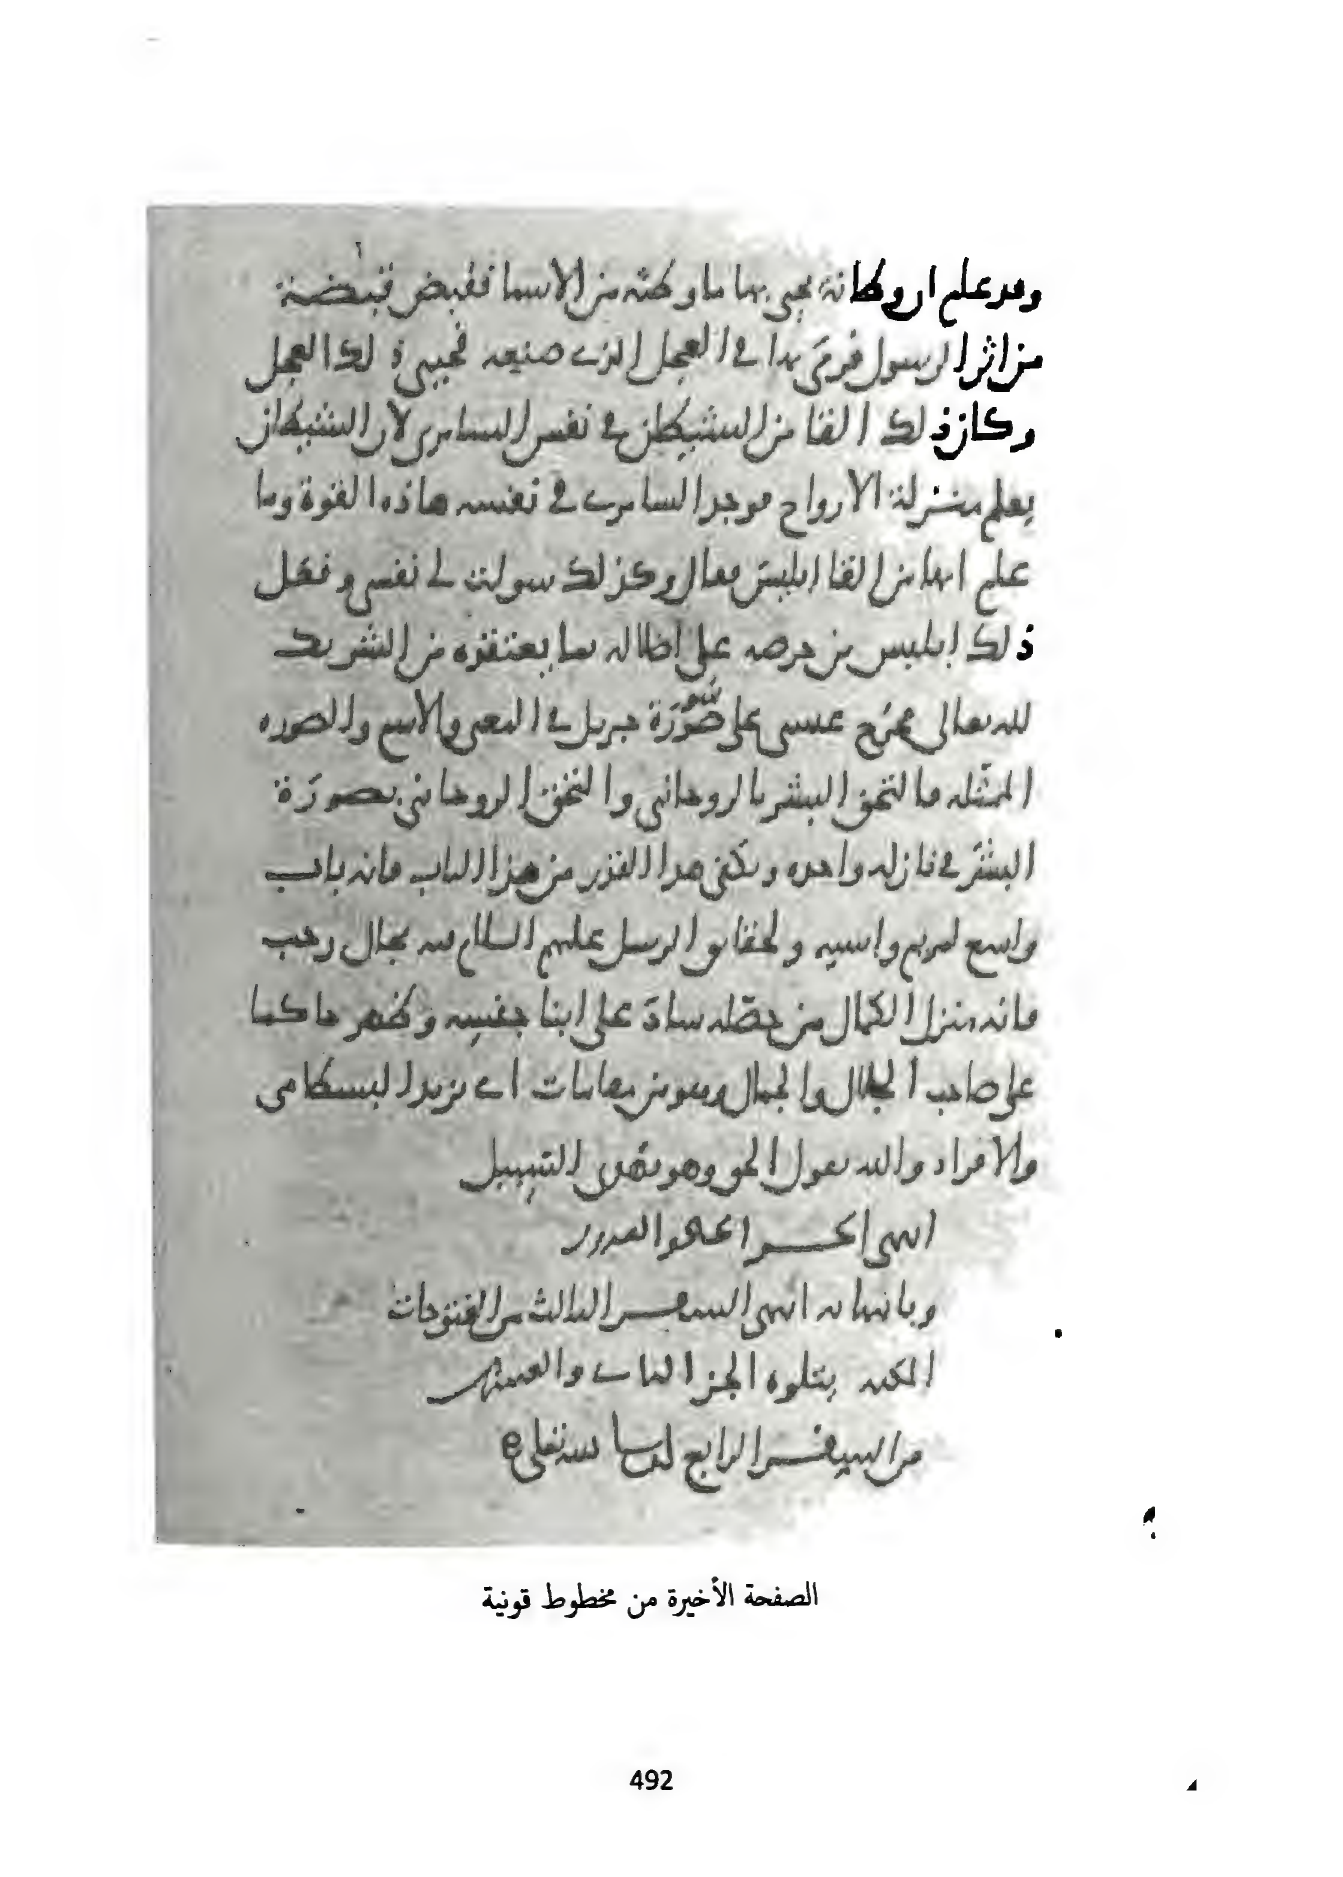 وقد علم ان وطأته يحيى بها ما وطئته من الاسما فقبض قبضة
من اثر الرسول فرمى بها في العجل الذي صنعه فحيي ذلك العجل
وكان ذلك القا من الشيطان في نفس السامري لان الشيطان
يعلم منزلة الارواح فوجد السامري في نفسه هاذه القوة وما
علم انها من القا ابليس فقال وكذلك سولت لي نفسي وفعل
ذلك ابليس من حرصه على اضلاله بما يعتقده من الشريك
لله تعالى فخرج عيسى على صورة جبريل في المعنى والاسم والصوره
الممثله فالتحق البشر بالروحاني والتحق الروحاني بصورة
البشر في نازله واحده ويكفي هذا القدر من هذا الباب فانه باب
واسع لمريم واسيه ولحقايق الرسل عليهم السلام فيه مجال رحب
فانه منزل الكمال من حصله ساد على ابنا جنسه وظهر حاكما
على صاحب الجلال والجمال وهو من مقامات ابي يزيد البسطامي
والافراد والله يقول الحق وهو يهدي السبيل
انتهى الجز
وبانتهايه انتهى السفر الثالث من الفتوحات
المكيه يتلوه الجز الثاني والعشرين
من السفر الرابع
الصفحة الأخيرة من مخطوط قونية
492